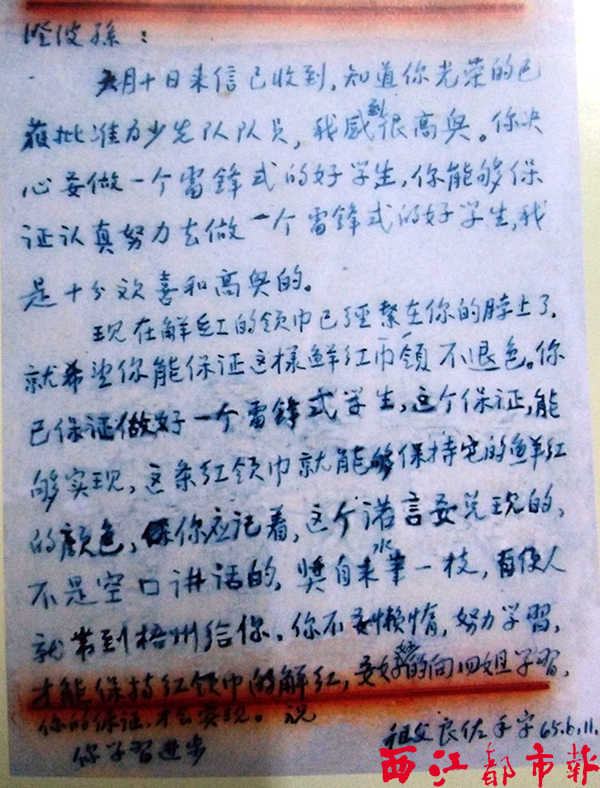 澄波孫：
六月十日来信已收到，知道你光荣的已
获批准为少先队队员，我感到很高興。你决
心要做一个雷鋒式的好学生，你能够保
证认真努力去做一个雷鋒式的好学生，我
是十分欢喜和高興的。
现在鮮红的领巾已經繫在你的脖上了，
就希望你能保证这様鮮红巾領不退色。你
已保证做好一个雷鋒式学生，这个保证，能
够实现，这条红领巾就能够保持它的鮮红
的颜色，你应记着，这个诺言要兑现的，
不是空口讲话的，奬自来水筆一枝，有便人
就带到梧州给你。你不要懒惰，努力学習，
才能保持红领巾的鮮红，要好好的向四姐学習，
你的保证，才会实现。祝
你学習进步
祖父良佐手字65.6.11.
西江都市报